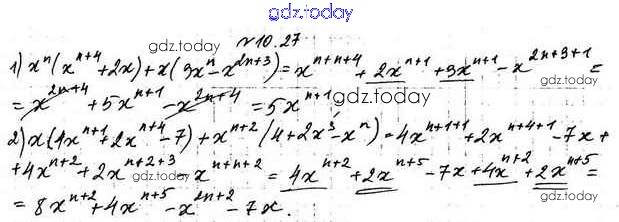 gdz.today
№10.27
gdz.today
1) xⁿ(xⁿ⁺⁴+2x)+x(3xⁿ-x²ⁿ⁺³)=xⁿ⁺ⁿ⁺⁴+2xⁿ⁺¹+3xⁿ⁺¹-x²ⁿ⁺³⁺¹=
=x²ⁿ⁺⁴+5xⁿ⁺¹-x²ⁿ⁺⁴=5xⁿ⁺¹;
gdz.today
2) x(4xⁿ⁺¹+2xⁿ⁺⁴-7)+xⁿ⁺²(4+2x³-xⁿ)=4xⁿ⁺¹⁺¹+2xⁿ⁺⁴⁺¹-7x+
+4xⁿ⁺²+2xⁿ⁺²⁺³-xⁿ⁺ⁿ⁺²=4xⁿ⁺²+2xⁿ⁺⁵-7x+4xⁿ⁺²+2xⁿ⁺⁵=
gdz.today
=8xⁿ⁺²+4xⁿ⁺⁵-x²ⁿ⁺²-7x.
gdz.today